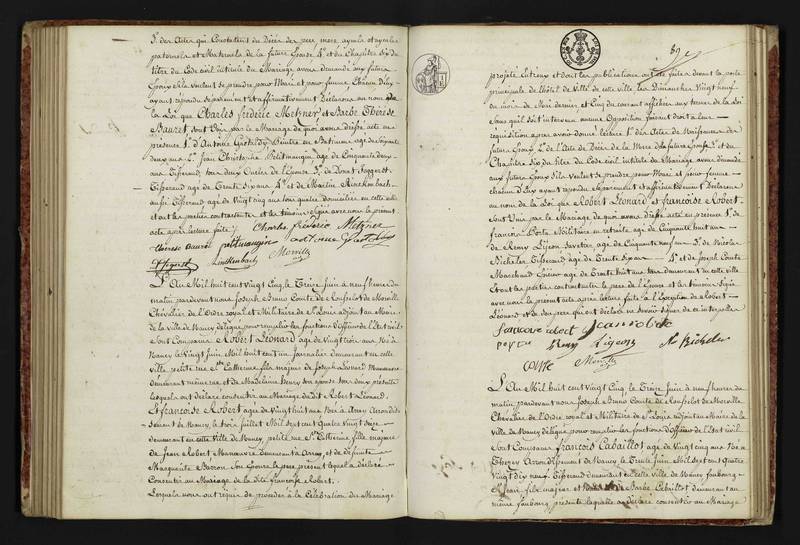 3°. des Actes qui Constatent du Décès des père, mère, ayeuls et ayeules
paternels et Maternels de la future Epouse 4°. et du Chapitre six du
titre du Code civil intitulé du Mariage, avons demandé aux futurs
Epoux s'ils veulent se prendre pour Mari et pour femme, Chacun d'eux
ayant répondu séparément et affirmativement Déclarons au nom de
la Loi que Charles fréderic Metzner et Barbe Thérèse
Bauret sont Unis par le Mariage de quoi avons dressé acte en
présence 1°. d'Antoine
deux ans 2°. Jean Christophe Petitmangin âgé de Cinquante deux
ans Tisserand, tous deux Oncles de l'Epouse 3°. de Donat
Tisserand âgé de Trente Six ans, 4°. et de Martin
aussi Tisserand âgé de Vingt cinq ans tous quatre domiciliés en cette ville
et ont les parties contractantes et les témoins Signé avec nous le présent
acte après lecture faite /. Charles fréderic Metzner
thérèse bauret petitmangin antoine
Morville
L'An Mil huit cent Vingt Cinq, le Treize Juin à neuf heures du
matin pardevant nous Joseph Bruno Comte de Rousselot de Morville
Chevalier de l'Ordre royal et Militaire de St. Louis adjoint au Maire
de la ville de Nancy délégué pour remplir les fonctions d'Officier de l'Etat civil
Sont Comparus Robert Léonard âgé de Vingt trois ans Né à
Nancy le Vingt Juin Mil huit cent un Journalier demeurant en cette
ville petite rue Ste. Catherine fils majeur de Joseph Léonard Manoeuvre
demeurant même rue et de Madeleine Henry son épouse tous deux présents
lesquels ont déclaré consentir au Mariage dudit Robert Léonard.
Et françoise Robert âgée de Vingt huit ans Née à Amey Arrondis-
sement de Nancy, le trois Juillet Mil sept cent Quatre Vingt Seize
demeurant en cette Ville de Nancy, petite rue Ste. Catherine fille majeure
de Jean Robert Manoeuvre demeurant à Arney, et de défunte
Marguerite Barron, Son Epouse le père présent lequel a déclaré
Consentir au Mariage de la dite françoise Robert.
Lesquels nous ont requis de procéder à la Célébration du Mariage
89
projeté Entr'eux et dont les publications ont été faites devant la porte
principale de l'hôtel de Ville de cette ville les Dimanches Vingt neuf
du mois de Mai dernier, et Cinq du courant affichées aux termes de la Loi
Sans qu'il soit intervenu aucune Opposition faisant droit à leur
réquisition après avoir donné lecture 1°. des Actes de Naissance des
futurs Epoux 2°. de l'Acte de Décès de la Mère de la future Epouse 3°. et du
Chapitre Six du titre du Code civil intitulé du Mariage avons demandé
aux futurs Epoux s'ils veulent se prendre pour Mari et pour femme
chacun d'Eux ayant répondu séparément et affirmativement Déclarons
au nom de la Loi que Robert Léonard et françoise Robert
Sont Unis par le Mariage de quoi avons dressé acte en présence 1°. de
francois Porte Militaire en retraite âgé de Cinquante huit ans
2°. de Remy Ligeon Savetier, âgé de Cinquante neuf ans 3°. de Nicolas
Bichelers Tisserand âgé de Trente Six ans 4°. et de Joseph Comte
Marchand Epicier âgé de Trente huit ans tous demeurant en cette ville
Et ont les parties contractantes le père de l'Epouse et les témoins Signé
avec nous le présent acte après lecture faite à l'Exception de Robert
Léonard et de ses père qui ont déclaré ne savoir Signer de ce interpellés
francoise robert Jean robert
porte Remy Ligeon N Bichelers
Comte Morville
L'An Mil huit cent Vingt Cinq, le Treize Juin à neuf heures du
matin, pardevant nous Joseph Bruno Comte de Rousselot de Morville
Chevalier de l'Ordre royal et Militaire de St. Louis, adjoint au Maire de la
ville de Nancy délégué pour remplir les fonctions d'Officier de l'Etat civil
Sont Comparus françois Cabaillot âgé de Vingt cinq ans Né à
Thezey Arrondissement de Nancy, le Trente Juin Mil sept cent Quatre
Vingt dix neuf, Tisserand demeurant en cette ville de Nancy faubourg
St. Jean fils majeur et Barbe Cabaillot demeurant au
même faubourg présente laquelle a déclaré consentir au Mariage